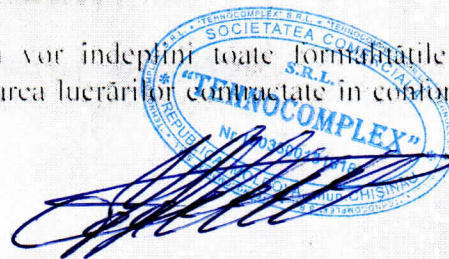 vor îndeplini toate formalitățile
area lucrărilor contractate în confor
SOCIETATEA COMERCIALĂ
S.R.L.
"TEHNOCOMPLEX"
REPUBLICA MOLDOVA mun. CHIȘINĂU